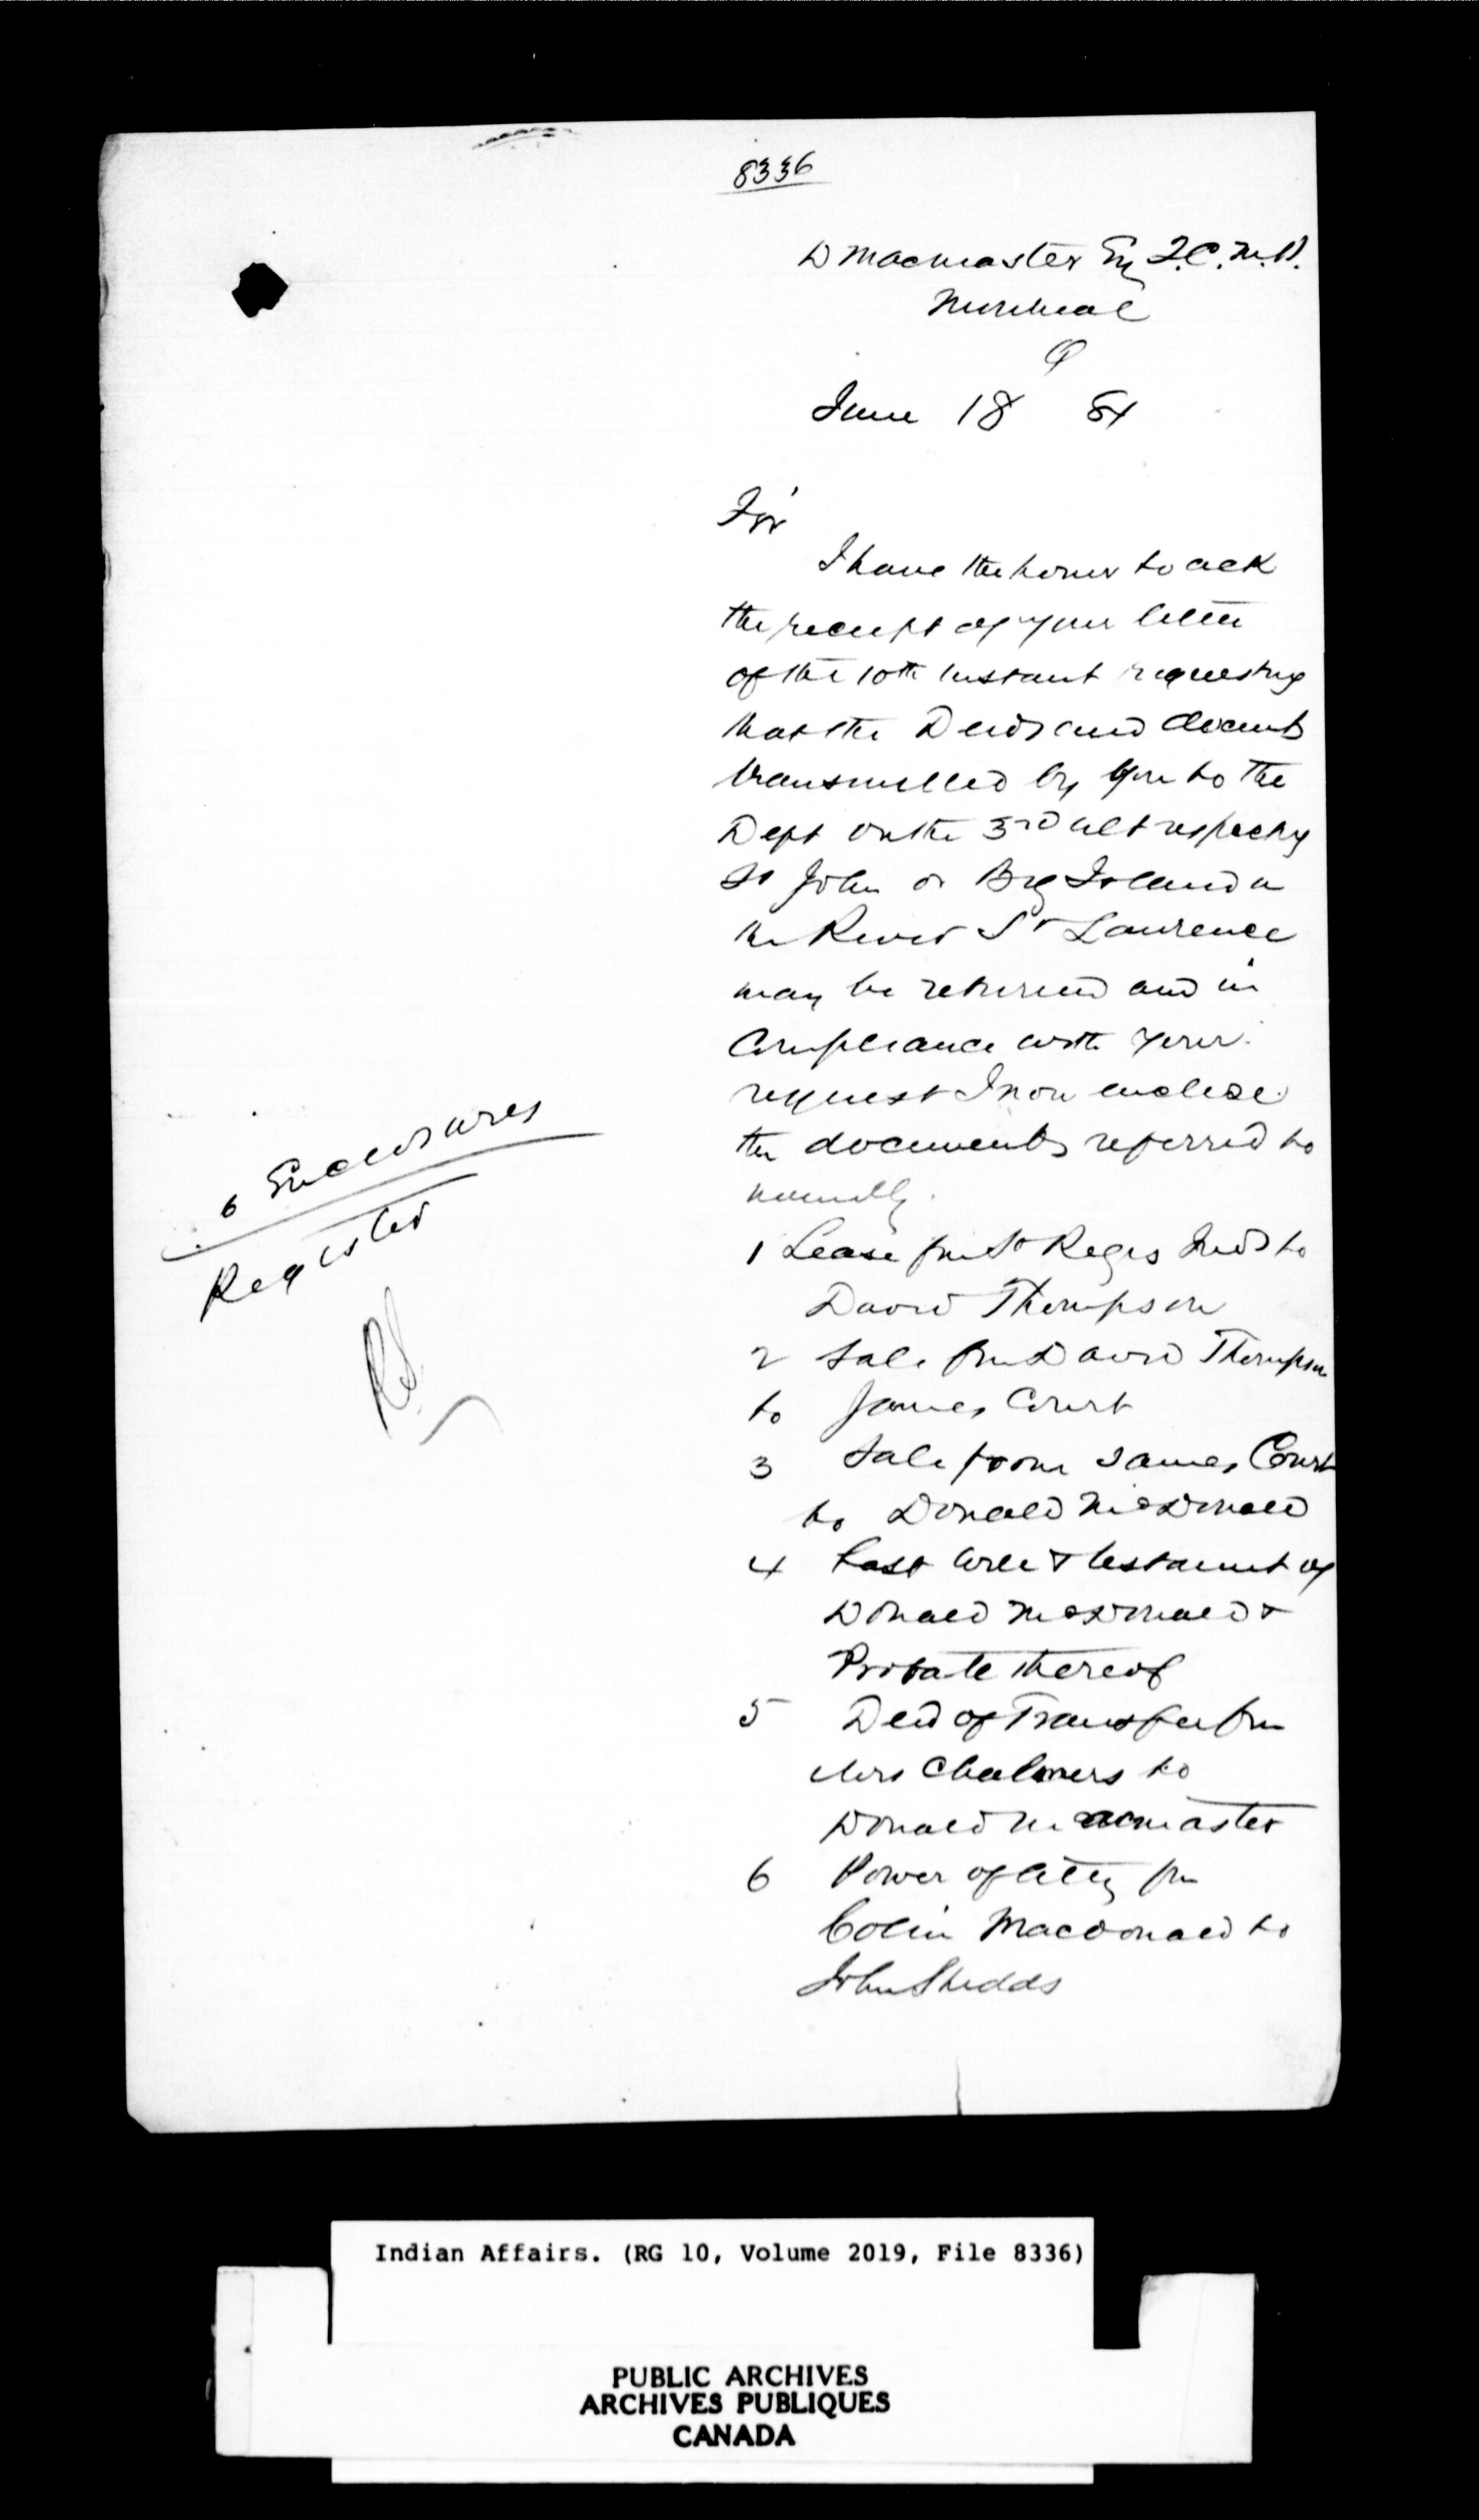 8336
D Macmaster Esq Q.C. M.P.
Montreal
Q
June 18 84
Sir
I have the honor to ack
the receipt of your letter
of the 10th instant requesting
that the Deeds and documts
transmitted by you to the
Dept on the 3rd ult respecting
St John or Big Island in
the River St Lawrence
may be returned and in
Compliance with your
request I now enclose
the documents referred to
namely.
6 Enclosures
Register
1 Lease from St Regis Inds to
David Thompson
2 Sale from David Thompson
to James Court
3 Sale from James Court
to Donald McDonald
4 Last Will & testament of
Donald McDonald &
Probate thereof
5 Deed of Transfer from
Mrs Chalmers to
Donald Macmaster
6 Power of Atty from
Colin Macdonald to
John Shedds
Indian Affairs. (RG 10, Volume 2019, File 8336)
PUBLIC ARCHIVES
ARCHIVES PUBLIQUES
CANADA